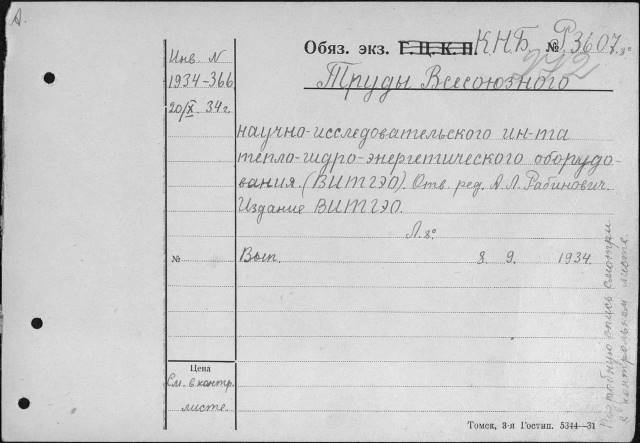 А.
Обяз. экз. Г.Ц.К.П. К.Н.Б. № Р3607.г.8º
272
Инв. N
1934-366
20/X. 34 г.
Труды Всесоюзного
научно-исследовательского ин-та
тепло-гидро-энергетического оборудо-
вания. (ВИТГЭО). Отв. ред. А. Л. Рабинович.
Издание ВИТГЭО.
Л. 8º
№ Вып. 8. 9. 1934.
Цена
См. в контр.
листе.
Подробную опись смотри
в контрольном листе.
Томск, 3-я Гостип. 5344—31